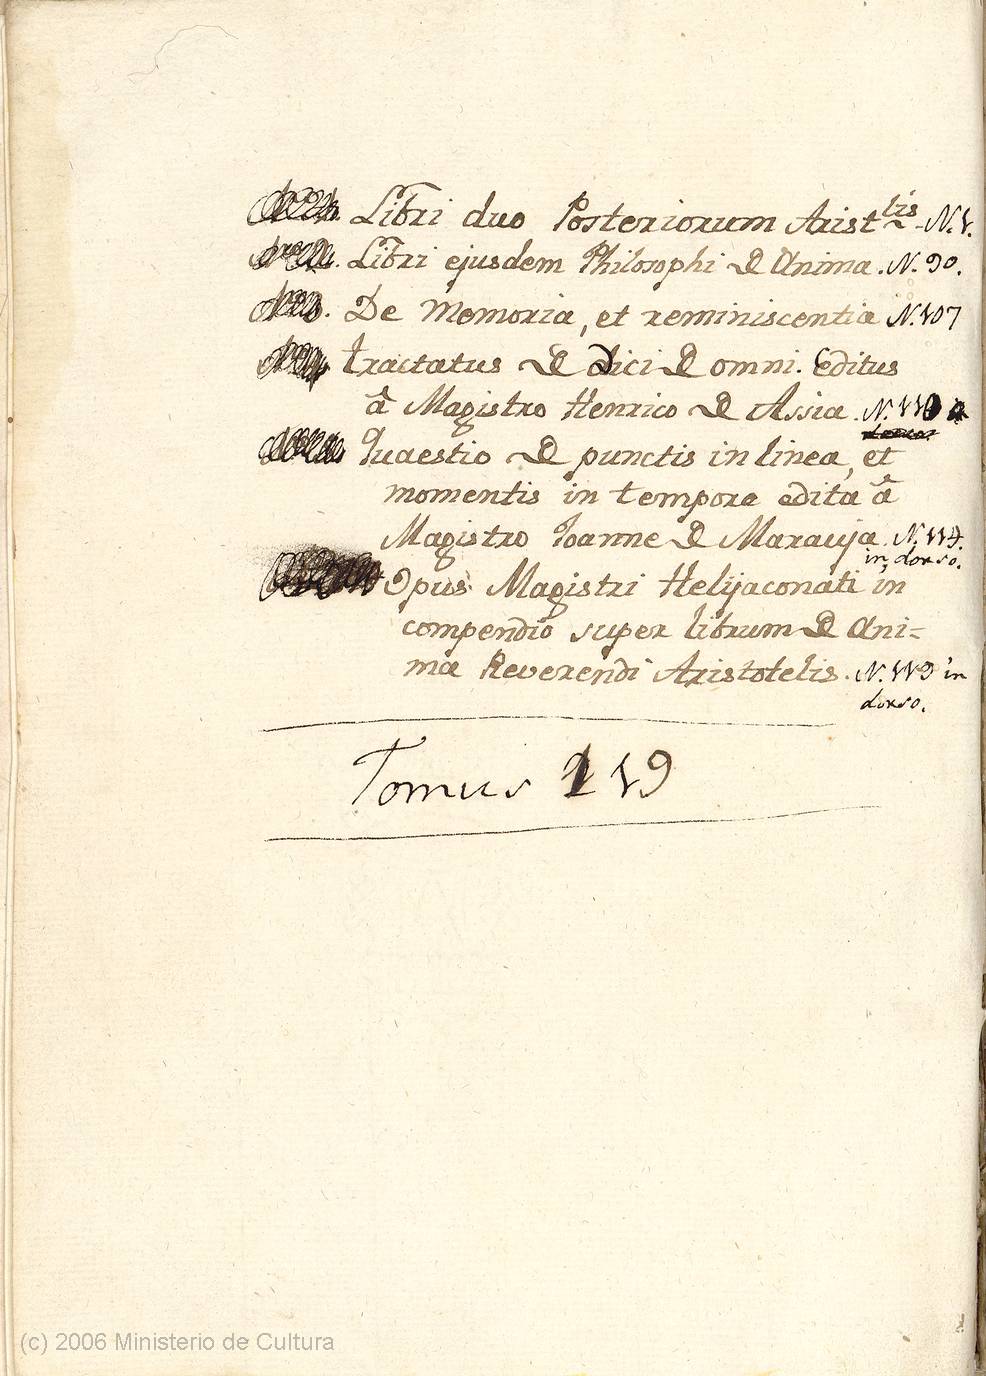 Libri duo Posteriorum Arist lis - N. 1.
Libri ejusdem Philosophi de Anima. N. 90.
De Memoria, et reminiscentia N. 107
tractatus de dici de omni. Editus
â Magistro Henrico de Assia. N. 110
Quaestio de punctis in linea, et
momentis in tempore edita â
Magistro Joanne de Marauja. N. 114.
in dorso.
Opus Magistri Helijaconati in
compendio super librum de Ani=
ma Reverendi Aristotelis. N. 119 in
dorso.
Tomus 119
(c) 2006 Ministerio de Cultura